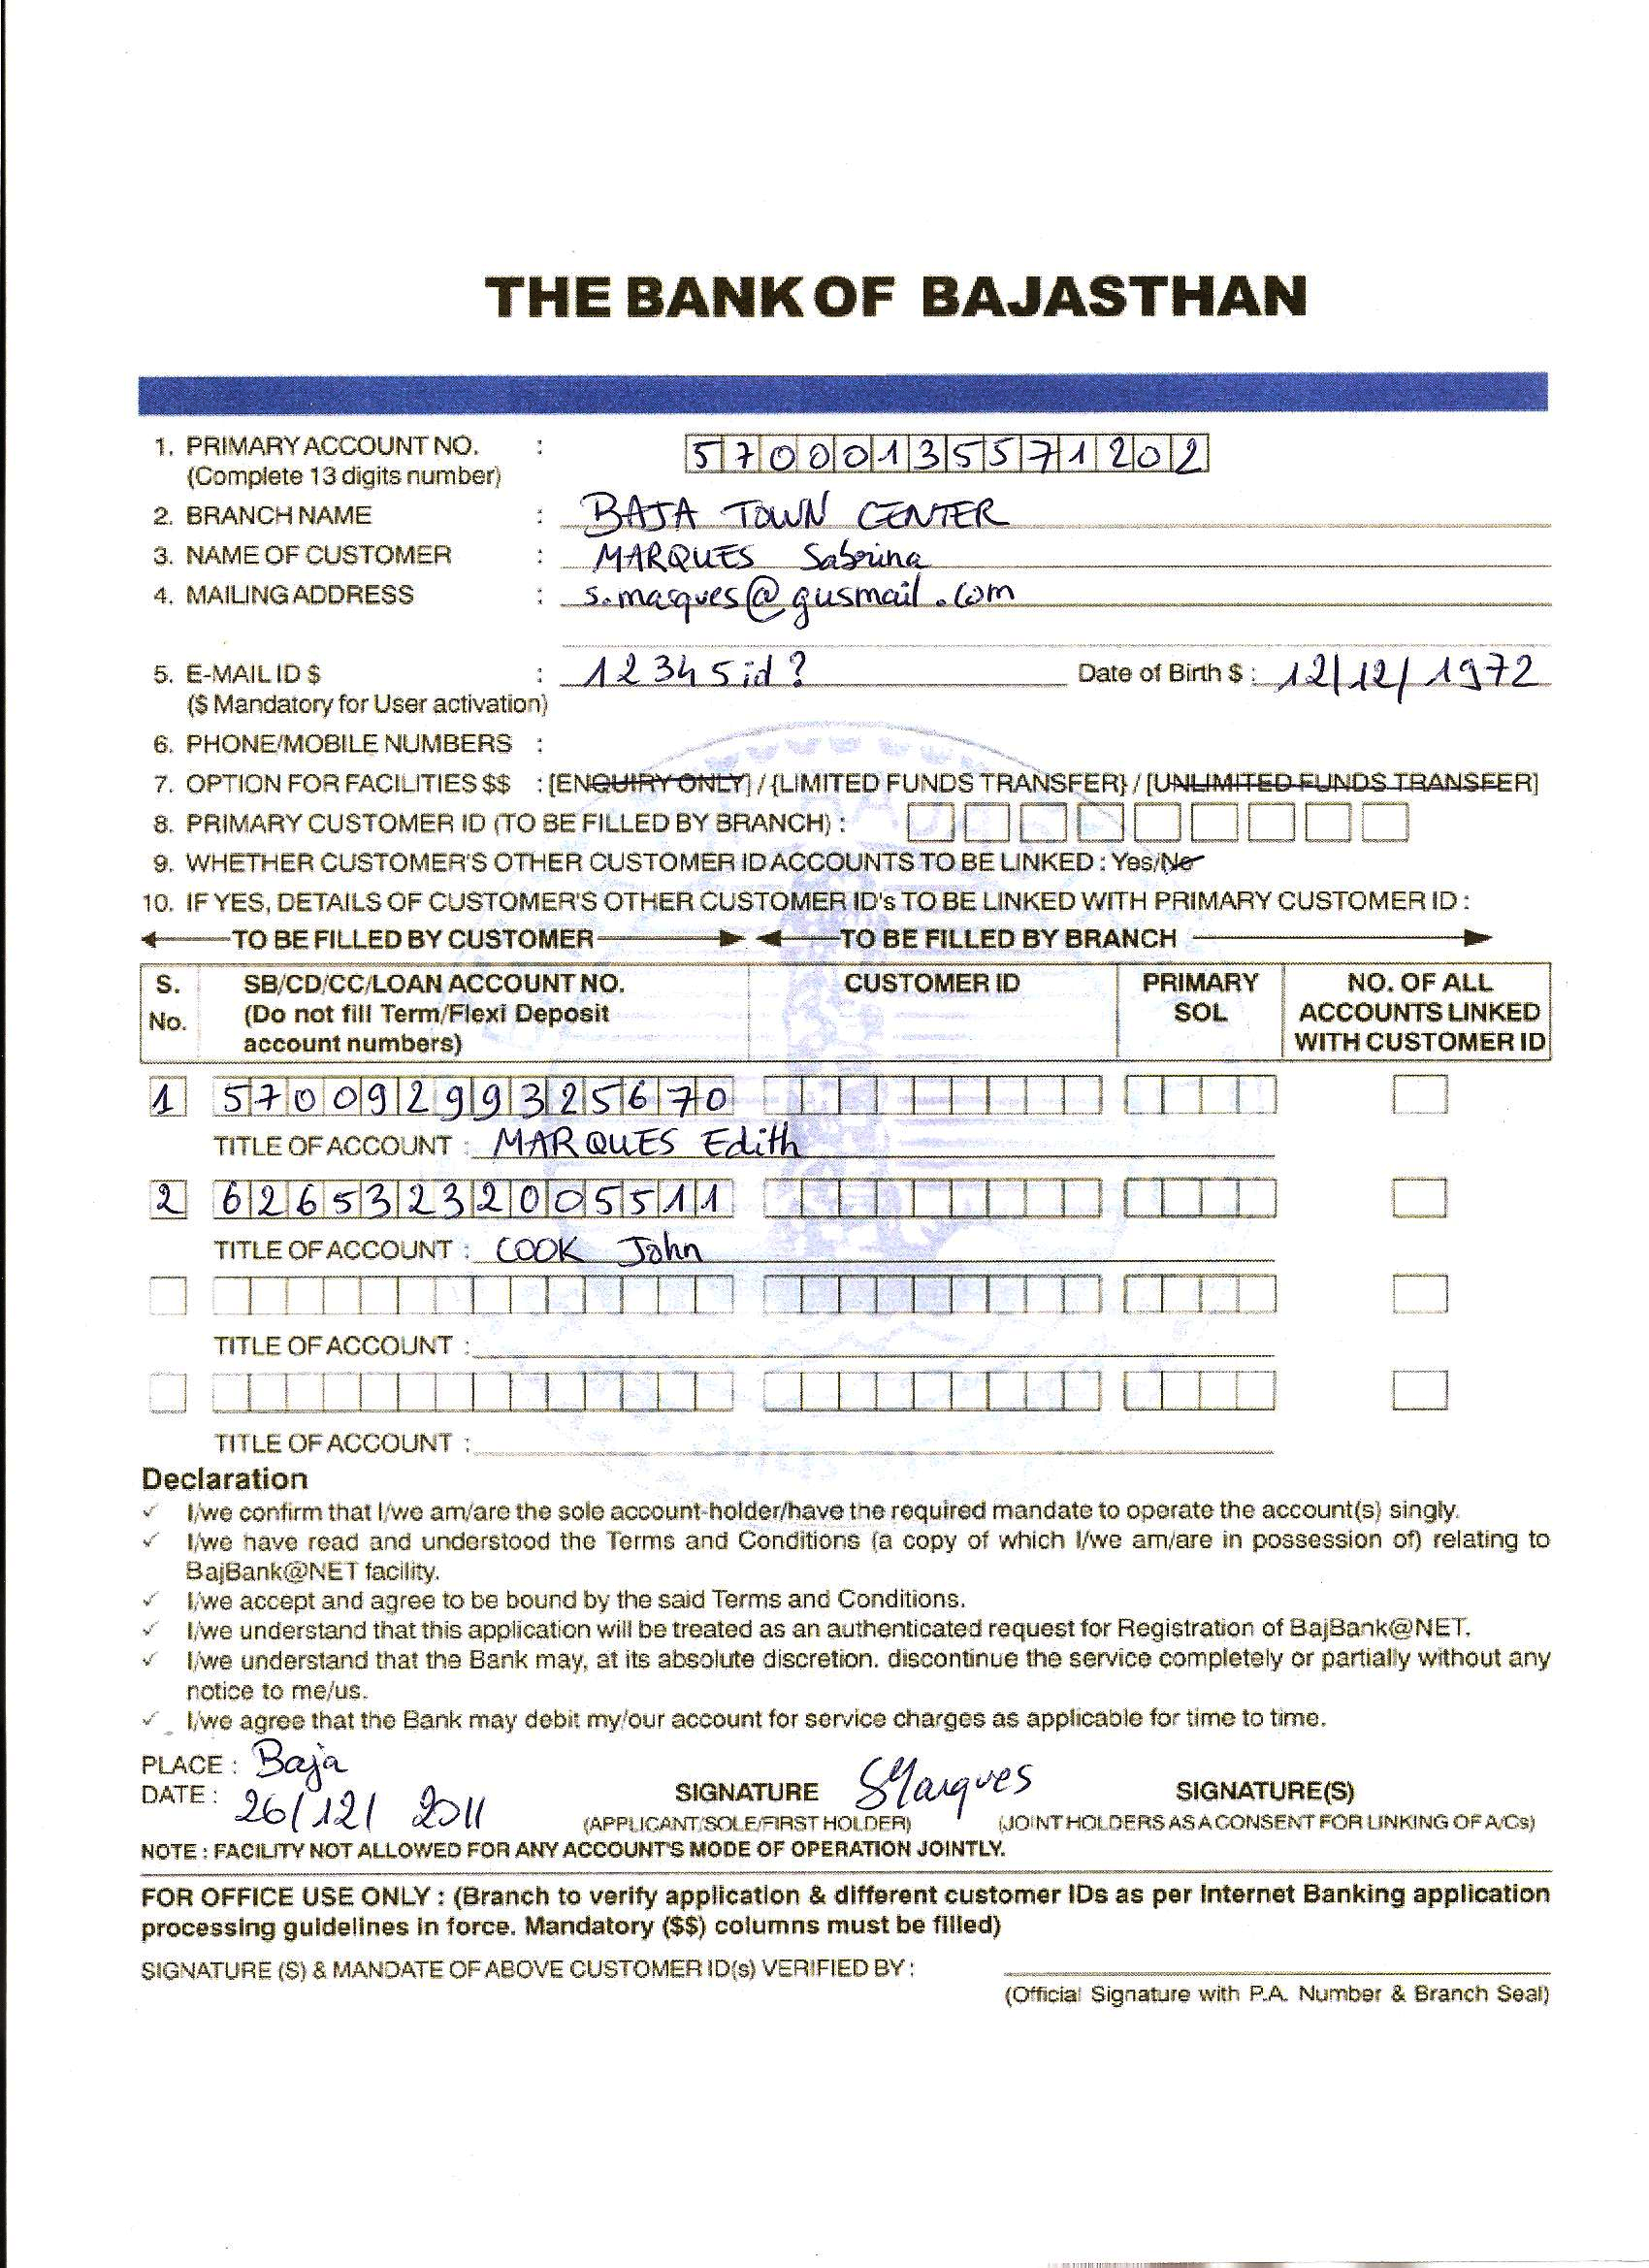 THE BANK OF BAJASTHAN
1. PRIMARY ACCOUNT NO. : 57000135571202
(Complete 13 digits number)
2. BRANCH NAME : BAJA TOWN CENTER
3. NAME OF CUSTOMER : MARQUES Sabrina
4. MAILING ADDRESS : s.marques@gusmail.com
5. E-MAIL ID $ : 12345id? Date of Birth $ : 12/12/1972
($ Mandatory for User activation)
6. PHONE/MOBILE NUMBERS :
7. OPTION FOR FACILITIES $$ : [ENQUIRY ONLY] / {LIMITED FUNDS TRANSFER} / [UNLIMITED FUNDS TRANSFER]
8. PRIMARY CUSTOMER ID (TO BE FILLED BY BRANCH) :
9. WHETHER CUSTOMER'S OTHER CUSTOMER ID ACCOUNTS TO BE LINKED : Yes/No
10. IF YES, DETAILS OF CUSTOMER'S OTHER CUSTOMER ID's TO BE LINKED WITH PRIMARY CUSTOMER ID :
TO BE FILLED BY CUSTOMER TO BE FILLED BY BRANCH
S. No. SB/CD/CC/LOAN ACCOUNT NO. (Do not fill Term/Flexi Deposit account numbers) CUSTOMER ID PRIMARY SOL NO. OF ALL ACCOUNTS LINKED WITH CUSTOMER ID
1 57009299325670
TITLE OF ACCOUNT : MARQUES Edith
2 62653232005511
TITLE OF ACCOUNT : COOK John
TITLE OF ACCOUNT :
TITLE OF ACCOUNT :
Declaration
✓ I/we confirm that I/we am/are the sole account-holder/have the required mandate to operate the account(s) singly.
✓ I/we have read and understood the Terms and Conditions (a copy of which I/we am/are in possession of) relating to
BajBank@NET facility.
✓ I/we accept and agree to be bound by the said Terms and Conditions.
✓ I/we understand that this application will be treated as an authenticated request for Registration of BajBank@NET.
✓ I/we understand that the Bank may, at its absolute discretion. discontinue the service completely or partially without any
notice to me/us.
✓ I/we agree that the Bank may debit my/our account for service charges as applicable for time to time.
PLACE : Baja
DATE : 26/12/2011 SIGNATURE SMarques SIGNATURE(S)
(APPLICANT/SOLE/FIRST HOLDER) (JOINT HOLDERS AS A CONSENT FOR LINKING OF A/Cs)
NOTE : FACILITY NOT ALLOWED FOR ANY ACCOUNT'S MODE OF OPERATION JOINTLY.
FOR OFFICE USE ONLY : (Branch to verify application & different customer IDs as per Internet Banking application
processing guidelines in force. Mandatory ($$) columns must be filled)
SIGNATURE (S) & MANDATE OF ABOVE CUSTOMER ID(s) VERIFIED BY :
(Official Signature with P.A. Number & Branch Seal)